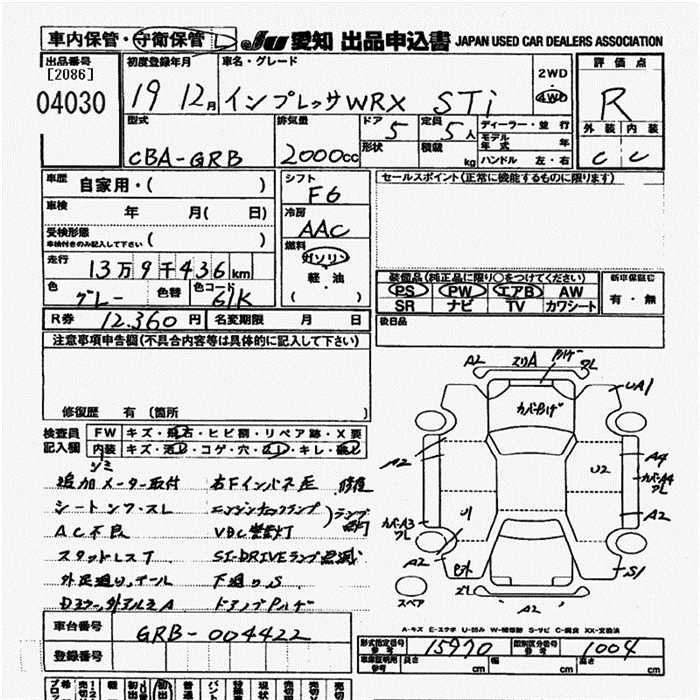 車内保管・守衛保管
JU 愛知 出品申込書 JAPAN USED CAR DEALERS ASSOCIATION
出品番号
[2086]
04030
初度登録年月
19 12月
車名・グレード
インプレッサWRX STi
2WD
4WD
評価点
R
外装 内装
C C
型式
CBA-GRB
排気量
2000cc
ドア 5
形状
定員 5人
積載 kg
ディーラー・並行
モデル年式 年
ハンドル 左・右
車歴 自家用・( )
車検 年 月( 日)
受検形態
車検付きのみ記入して下さい ( )
走行
13万9千436km
色 グレー 色替
色コード 61K
シフト
F6
冷房
AAC
燃料
ガソリン
軽・油
( )
セールスポイント(正常に機能するものに限ります)
装備品(純正品に限り○をつけてください)
PS PW エアB AW
SR ナビ TV カワシート
新車保証に
有・無
R券 12,360円 名変期限 月 日
後日品
注意事項申告欄(不具合内容等は具体的に記入して下さい)
修復歴 有 (箇所 )
検査員
記入欄
FW キズ・飛石・ヒビ割・リペア跡・X要
内装 キズ・汚レ・コゲ・穴・スレ・キレ・破レ
シミ
追加メーター取付 右Fインパネ圧 修復
シートンフ・スレ エンジンチェックランプ
AC不良 VDC警告灯
スタッドレスT SI-DRIVEランプ点滅
下廻りS
車台番号 GRB-004422
登録番号
A2 スリA ハゲ ワレ
カバーハゲ
UA1
A2
A4
U2
カバーA4
ワレ
A2
U1
カバーA3
ワレ
A2
S1
スペア
A2
A-キズ E-エクボ U-凹み W-補修跡 S-サビ C-腐食 XX-交換済
形式指定番号 15970 類別区分番号 1004
参考 参考
車庫証明用
参考 長さ cm 幅 cm 高さ cm